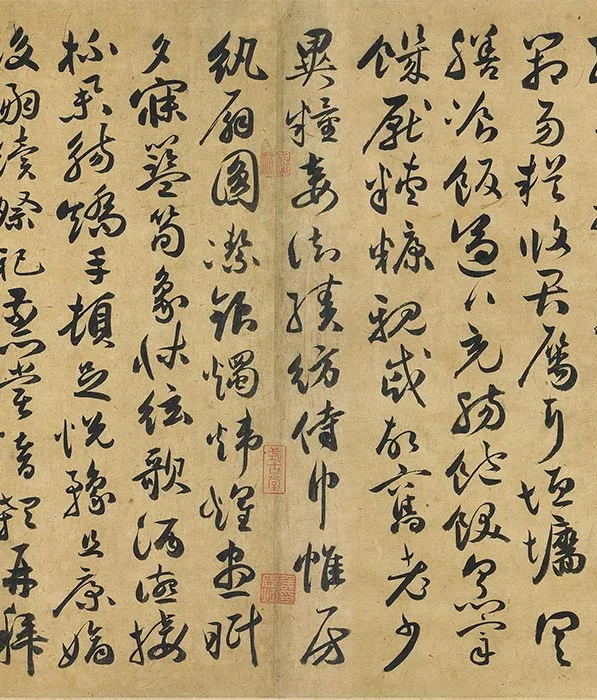 易輶攸畏屬耳垣墻具
膳飡飯適口充腸飽飫烹宰
飢厭糟糠親戚故舊老少
異糧妾御績紡侍巾帷房
紈扇圓潔銀燭煒煌晝眠
夕寐藍筍象床絃歌酒讌接
杯舉觴矯手頓足悅豫且康嫡
後嗣續祭祀蒸嘗稽顙再拜
式古堂